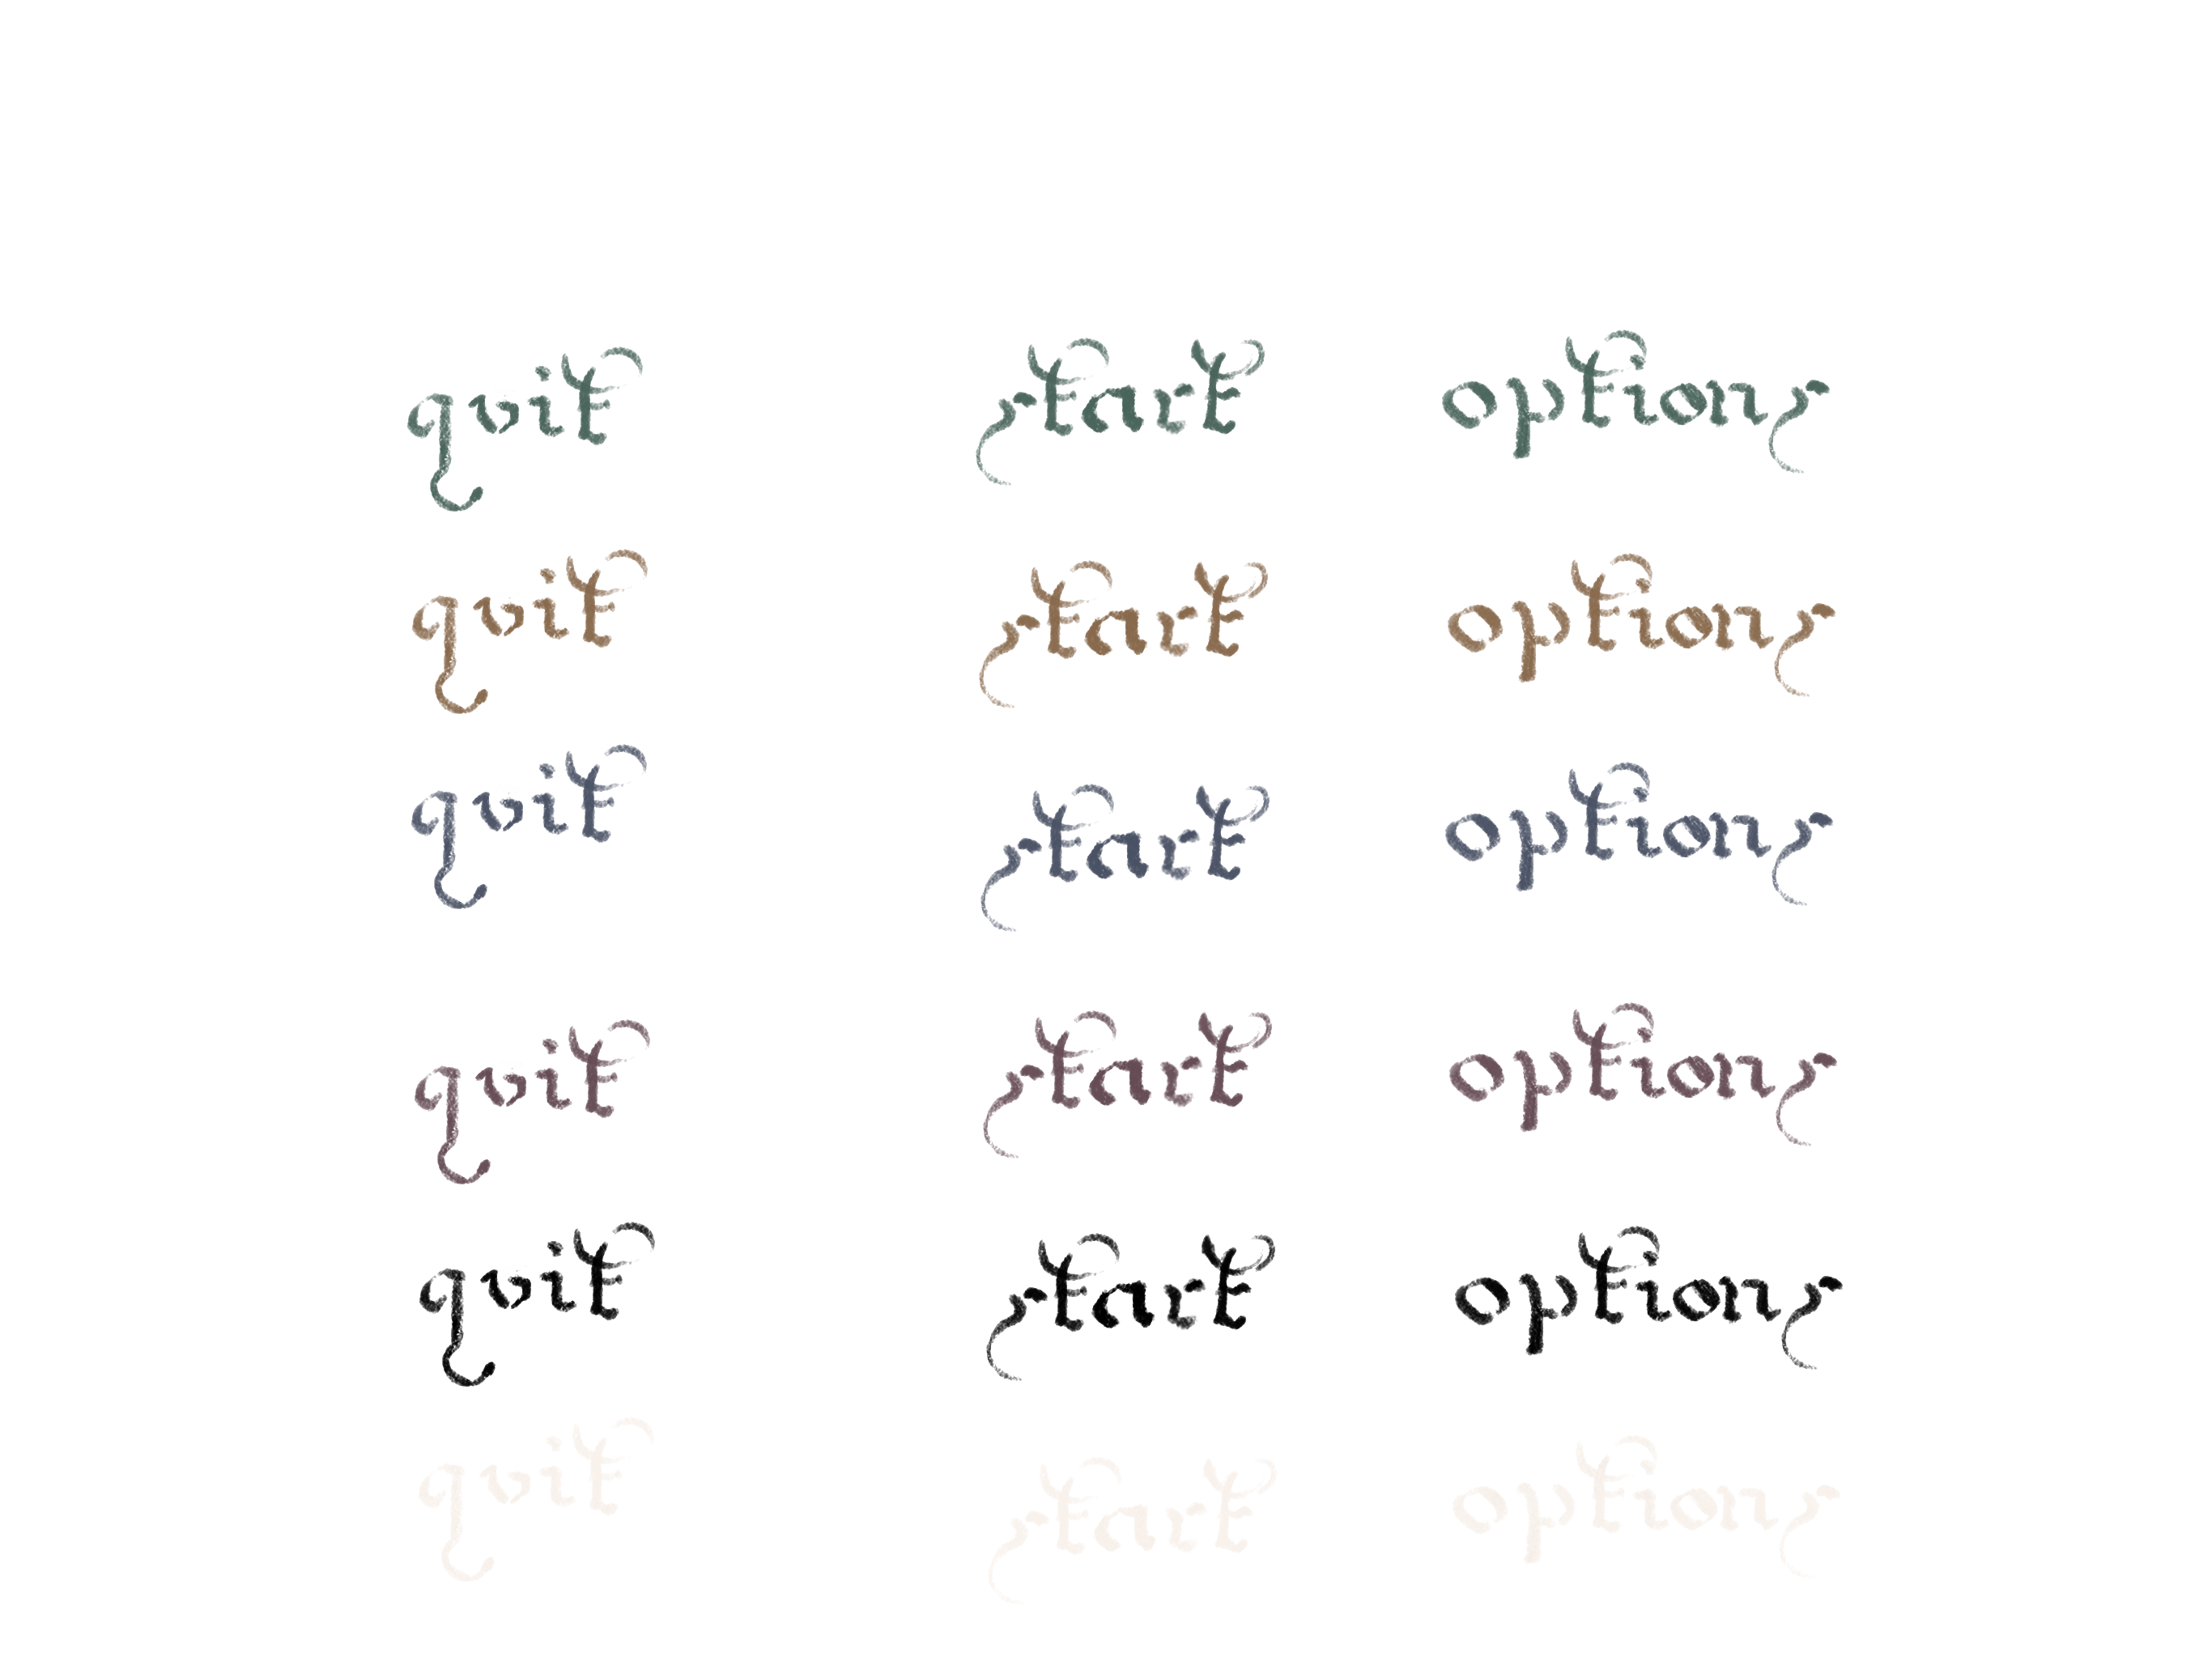 quit start options
quit start options
quit start options
quit start options
quit start options
quit start options